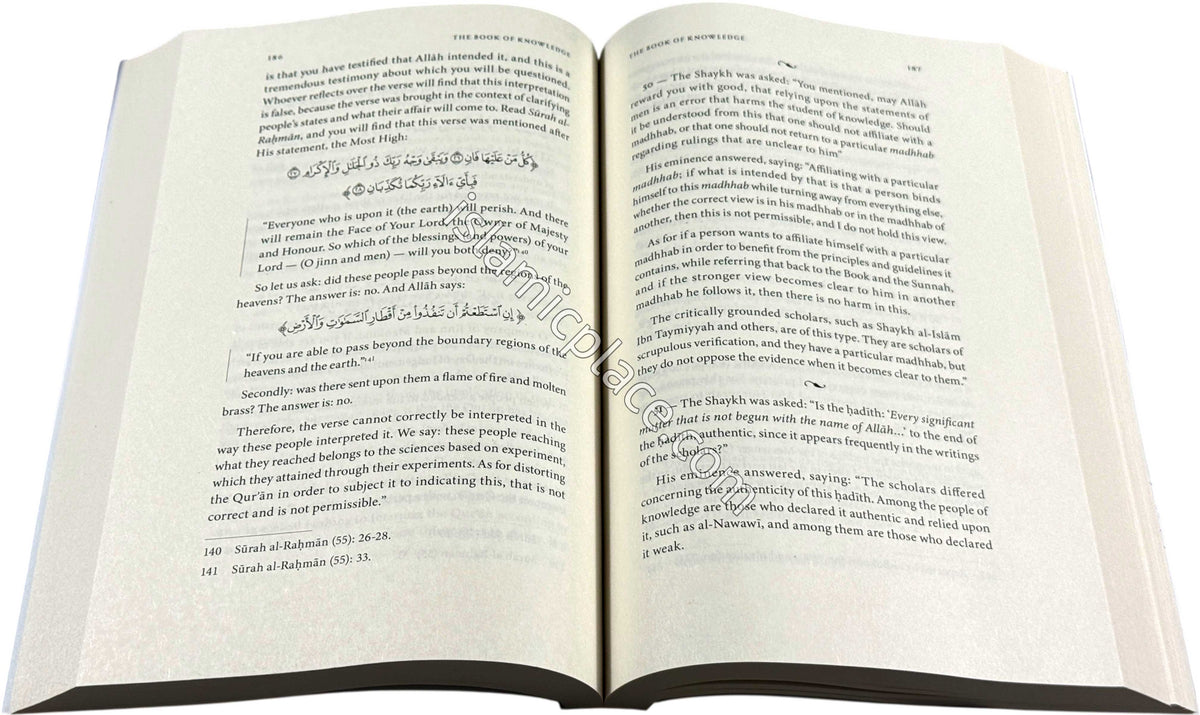 186
THE BOOK OF KNOWLEDGE
is that you have testified that Allāh intended it, and this is a
tremendous testimony about which you will be questioned.
Whoever reflects over the verse will find that this interpretation
is false, because the verse was brought in the context of clarifying
people's states and what their affair will come to. Read Sūrah al-
Raḥmān, and you will find that this verse was mentioned after
His statement, the Most High:
﴿كُلُّ مَنْ عَلَيْهَا فَانٍ ۝٢٦ وَيَبْقَىٰ وَجْهُ رَبِّكَ ذُو ٱلْجَلَٰلِ وَٱلْإِكْرَامِ ۝٢٧
فَبِأَيِّ ءَالَآءِ رَبِّكُمَا تُكَذِّبَانِ ۝٢٨﴾
“Everyone who is upon it (the earth) will perish. And there
will remain the Face of Your Lord, the Owner of Majesty
and Honour. So which of the blessings (and powers) of your
Lord — (O jinn and men) — will you both deny?”140
So let us ask: did these people pass beyond the region of the
heavens? The answer is: no. And Allāh says:
﴿إِنِ ٱسْتَطَعْتُمْ أَن تَنفُذُوا۟ مِنْ أَقْطَارِ ٱلسَّمَٰوَٰتِ وَٱلْأَرْضِ﴾
“If you are able to pass beyond the boundary regions of the
heavens and the earth.”141
Secondly: was there sent upon them a flame of fire and molten
brass? The answer is: no.
Therefore, the verse cannot correctly be interpreted in the
way these people interpreted it. We say: these people reaching
what they reached belongs to the sciences based on experiment,
which they attained through their experiments. As for distorting
the Qur'ān in order to subject it to indicating this, that is not
correct and is not permissible.”
140 Sūrah al-Raḥmān (55): 26-28.
141 Sūrah al-Raḥmān (55): 33.
THE BOOK OF KNOWLEDGE
187
50 — The Shaykh was asked: “You mentioned, may Allāh
reward you with good, that relying upon the statements of
men is an error that harms the student of knowledge. Should
it be understood from this that one should not affiliate with a
madhhab, or that one should not return to a particular madhhab
regarding rulings that are unclear to him”
His eminence answered, saying: “Affiliating with a particular
madhhab; if what is intended by that is that a person binds
himself to this madhhab while turning away from everything else,
whether the correct view is in his madhhab or in the madhhab of
another, then this is not permissible, and I do not hold this view.
As for if a person wants to affiliate himself with a particular
madhhab in order to benefit from the principles and guidelines it
contains, while referring that back to the Book and the Sunnah,
and if the stronger view becomes clear to him in another
madhhab he follows it, then there is no harm in this.
The critically grounded scholars, such as Shaykh al-Islām
Ibn Taymiyyah and others, are of this type. They are scholars of
scrupulous verification, and they have a particular madhhab, but
they do not oppose the evidence when it becomes clear to them.”
51 — The Shaykh was asked: “Is the ḥadīth: ‘Every significant
matter that is not begun with the name of Allāh...’ to the end of
the ḥadīth authentic, since it appears frequently in the writings
of the scholars?”
His eminence answered, saying: “The scholars differed
concerning the authenticity of this ḥadīth. Among the people of
knowledge are those who declared it authentic and relied upon
it, such as al-Nawawī, and among them are those who declared
it weak.
islamicplace.com